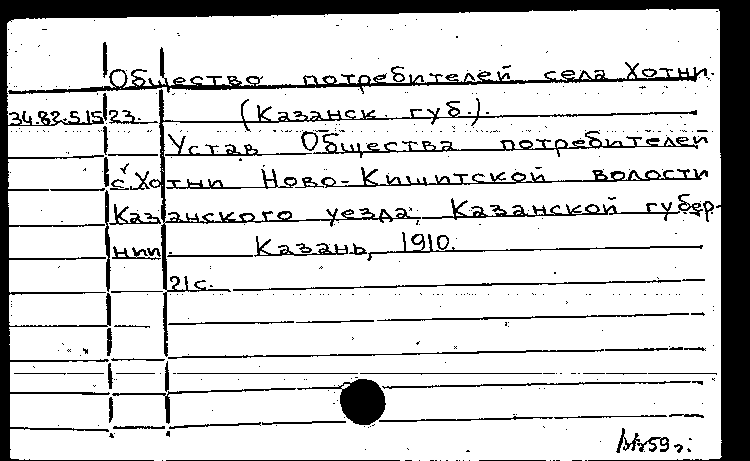 Общество потребителей села Хотни.
34.82.5.15 23. (Казанск. губ.).
Устав Общества потребителей
с. Хотни Ново-Кишитской волости
Казанского уезда, Казанской губер-
нии. Казань, 1910.
21 с.
59 г.